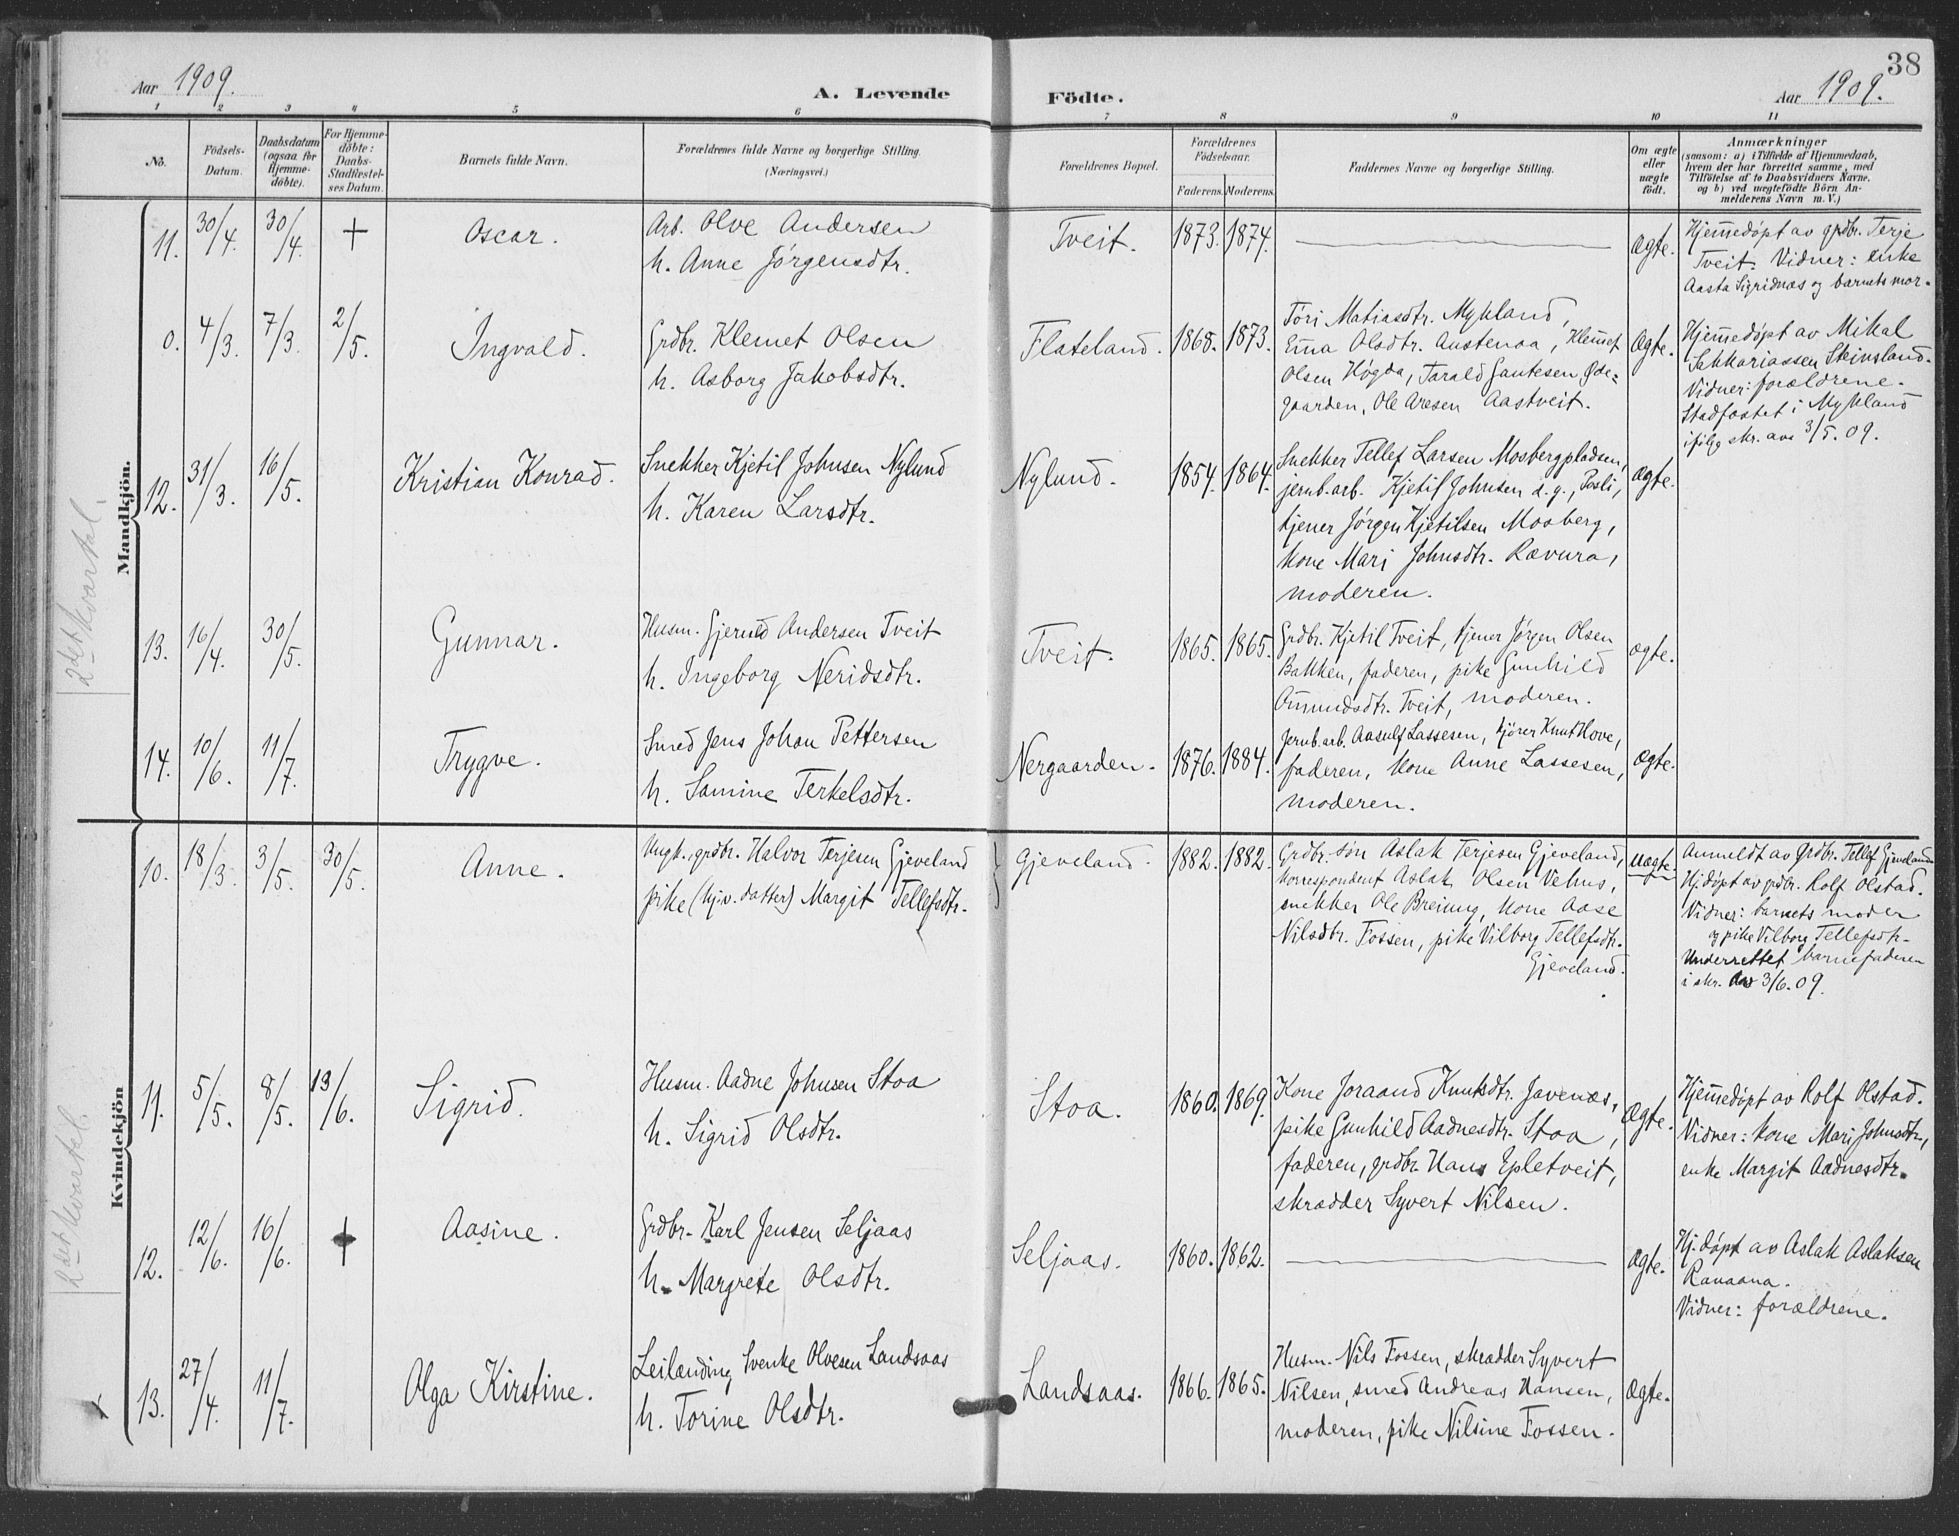 38
Aar 1909.
A. Levende Födte.
Aar 1909.
1 2 3 4 5 6 7 8 9 10 11
No.
Födsels-
Datum.
Daabsdatum
(ogsaa for
Hjemme-
döbte).
For Hjemme-
döbte:
Daabs-
Stadfæstel-
ses Datum.
Barnets fulde Navn.
Forældrenes fulde Navne og borgerlige Stilling.
(Næringsvei.)
Forældrenes Bopæl.
Forældrenes
Födselsaar.
Faderens. Moderens.
Faddernes Navne og borgerlige Stilling.
Om ægte
eller
uægte
födt.
Anmærkninger
(saasom: a) i Tilfælde af Hjemmedaab,
hvem der har forrettet samme, med
Tilföielse af to Daabsvidners Navne,
og b) ved uægtefödte Börn An-
melderens Navn m. V.)
Mandkjön.
2det kvartal.
11. 30/4. 30/4. + Oscar.
Arb. Olve Andersen
h. Anne Jørgensdtr.
Tveit. 1873. 1874. Ægte.
Hjemmedøpt av grdbr. Terje
Tveit. Vidner: enke
Aasta Sigridnæs og barnets mor.
0. 4/3. 7/3. 2/5. Ingvald.
Grdbr. Klemet Olsen
h. Asborg Jakobsdtr.
Flateland. 1868. 1873.
Tøri Matiasdtr. Mykland,
Emma Olsdtr. Austenaa, Klemet
Olsen Høgda, Tarald Gautesen Øde-
gaarden, Ole Aresen Aastveit.
Ægte.
Hjemmedøpt av Mikal
Sakkariassen Steinsland.
Vidner: forældrene.
Stadfæstet i Mykland
ifølg skr. av 3/5.09.
12. 31/3. 16/5. Kristian Konrad.
Snekker Kjetil Johnsen Nylund
h. Karen Larsdtr.
Nylund. 1854. 1864.
Snekker Tellef Larsen Mosbergpladsen,
jernb.arb. Kjetil Johnsen d.y., Posli,
tjener Jørgen Kjetilsen Mosberg,
kone Mari Johnsdtr. Rævura,
moderen.
Ægte.
13. 16/4. 30/5. Gunnar.
Husm. Gjerulf Andersen Tveit
h. Ingeborg Neridsdtr.
Tveit. 1865. 1865.
Grdbr. Kjetil Tveit, tjener Jørgen Olsen
Bakken, faderen, pike Gunhild
Omundsdtr. Tveit, moderen.
Ægte.
14. 10/6. 11/7. Trygve.
Smed Jens Johan Pettersen
h. Samine Terkelsdtr.
Nergaarden. 1876. 1884.
Jernb.arb. Aasulf Lassesen, kjører Knut Hove,
faderen, kone Anne Lassesen,
moderen.
Ægte.
Kvindekjön
2det kvartal.
10. 18/3. 3/5. 30/5. Anne.
Ungk. grdbr. Halvor Terjesen Gjeveland
pike (hjv. datter) Margit Tellefsdtr.
Gjeveland. 1882. 1882.
Grdbr. søn Aslak Terjesen Gjeveland,
korrespondent Aslak Olsen Vehus,
snekker Ole Breimy, kone Aase
Nilsdtr. Fossen, pike Vilborg Tellefsdtr.
Gjeveland.
Uægte.
Anmeldt av grdbr. Tellef Gjeveland.
Hj.døpt av grdbr. Rolf Olstad.
Vidner: barnets moder
og pike Vilborg Tellefsdtr.
Underrettet barnefaderen
i skr. av 3/6.09.
11. 5/5. 8/5. 13/6. Sigrid.
Husm. Aadne Johnsen Stoa
h. Sigrid Olsdtr.
Stoa. 1860. 1869.
Kone Joraand Knutsdtr. Javenæs,
pike Gunhild Aadnesdtr. Stoa,
faderen, grdbr. Hans Epletveit,
skrædder Syvert Nilsen.
Ægte.
Hjemmedøpt av Rolf Olstad.
Vidner: kone Mari Johnsdtr.,
enke Margit Aadnesdtr.
12. 12/6. 16/6. + Aasine.
Grdbr. Karl Jensen Seljaas
h. Margrete Olsdtr.
Seljaas. 1860. 1862. Ægte.
Hj.døpt av Aslak Aslaksen
Ranaana.
Vidner: forældrene.
13. 27/4. 11/7. Olga Kirstine.
Leilænding Svenke Olvesen Landsaas
h. Torine Olsdtr.
Landsaas. 1866. 1865.
Husm. Nils Fossen, skrædder Syvert
Nilsen, smed Andreas Hansen,
moderen, pike Nilsine Fossen.
Ægte.